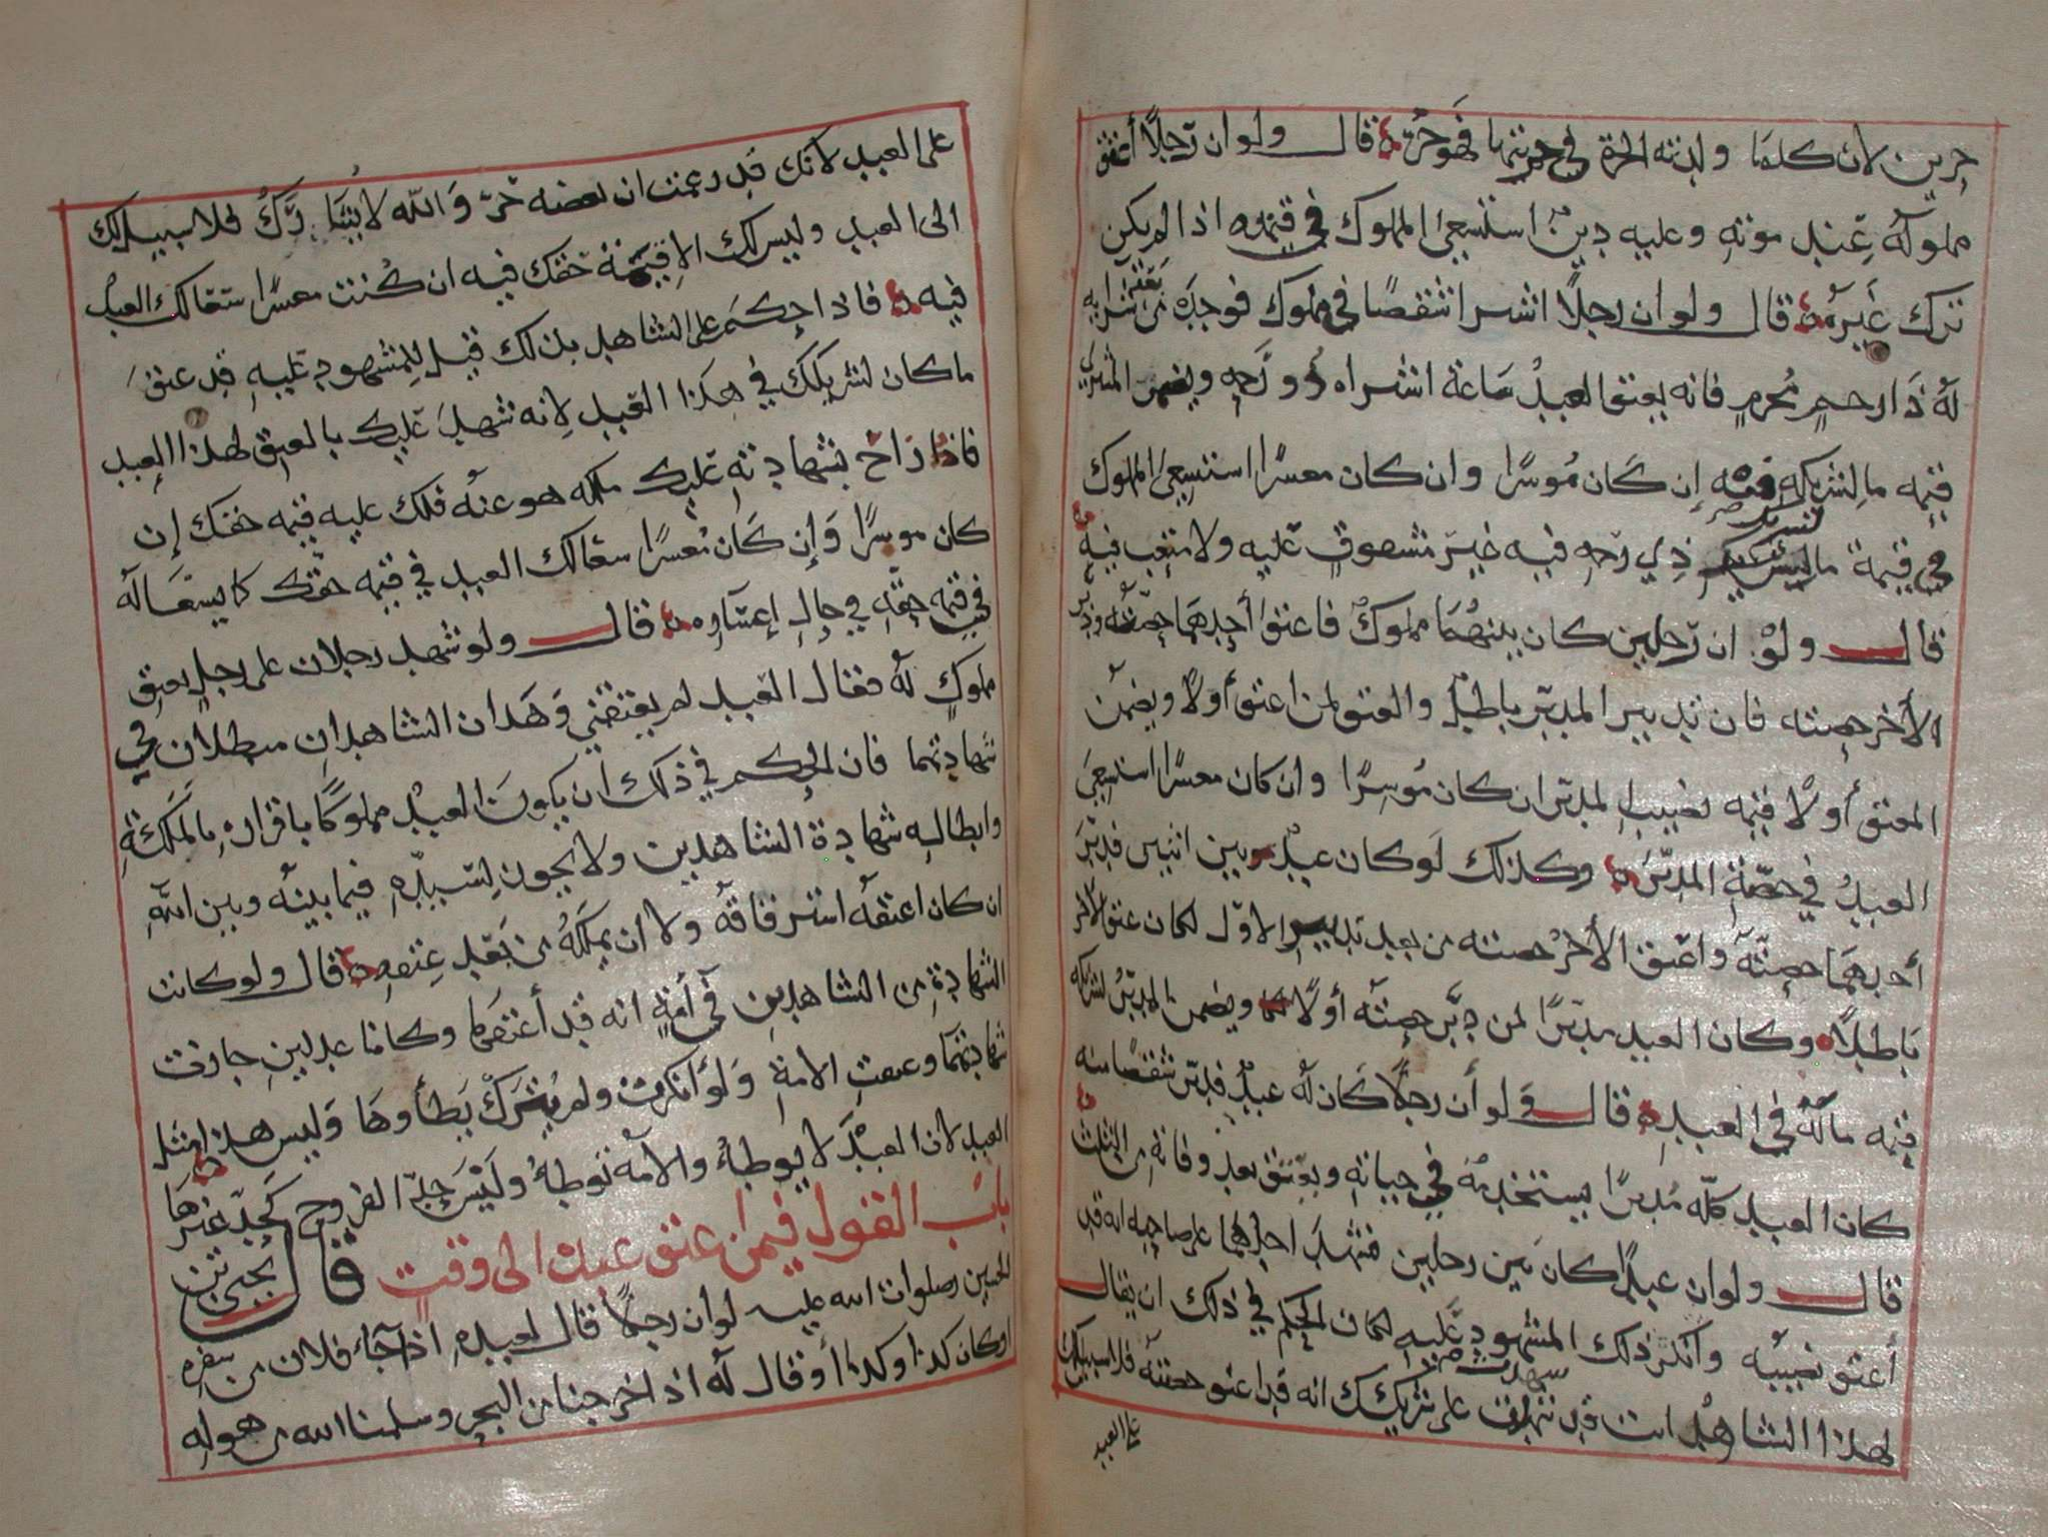 حرين لأن كلما ولدته الحرة في حريتها فهو حر قال ولو ان رجلا أعتق
مملوكه عند موته وعليه دين استسعي المملوك في قيمته اذا لم يكن
ترك غيره قال ولو ان رجلا اشترا شقصا في مملوك فوجده من بعد شرايه
له ذا رحم محرم فانه يعتق العبد ساعة اشتراه ذو رحمه ويضمن المشتري
قيمه ما لشريكه فيه إن كان موسرا وان كان معسرا استسعي المملوك
في قيمة ما لشريك ذي رحمه فيه غير مشقوق عليه ولا متعب فيه
قال ولو ان رجلين كان بينهما مملوك فاعتق أحدهما حصته ودبر
الأخر حصته فان تدبير المدبر باطل والعتق لمن اعتق أولا ويضمن
المعتق أولا قيمه نصيب المدبر ان كان موسرا وان كان معسرا استسعي
العبد في حصة المدبر وكذلك لو كان عبد بين اثنين فدبر
أحدهما حصته واعتق الأخر حصته من بعد تدبير الاول لكان عتق الاخر
باطلا وكان العبد مدبرا لمن دبر حصته أولا ويضمن المدبر لشريكه
قيمه ماله في العبد قال ولو أن رجلا كان له عبد فدبر شقصا منه
كان العبد كله مدبرا يستخدمه في حياته ويعتق بعد وفاته من الثلث
قال ولو ان عبدا كان بين رجلين فشهد احدهما على صاحبه انه قد
أعتق نصيبه وانكر ذلك المشهود عليه لكان الحكم في ذلك ان يقال
لهذا الشاهد انت قد شهدت على شريكك انه قد اعتق حصته فلا سبيل لك
على العبد
على العبد لأنك قد زعمت ان بعضه حر والله لا شريك فلا سبيل لك
الى العبد وليس لك الا قيمة حقك فيه ان كنت معسرا سعا لك العبد
فيه فاذا حكم على الشاهد بذلك قيل للمشهود عليه قد عتق
ما كان لشريكك في هذا العبد لانه شهد عليك بالعتق لهذا العبد
فاذا زاح بشهادته عليك ملكه هو عنه فلك عليه قيمه حقك إن
كان موسرا وإن كان معسرا سعا لك العبد في قيمه حقك كما يسعا له
في قيمه حقه في حال إعساره قال ولو شهد رجلان على رجل بعتق
مملوك له فقال العبد لم يعتقني وهذان الشاهدان مبطلان في
شهادتهما فان الحكم في ذلك ان يكون العبد مملوكا باقراره بالملكة
وابطاله شهادة الشاهدين ولا يجوز لسيده فيما بينه وبين الله
ان كان اعتقه استرقاقه ولا ان يملكه من بعد عتقه قال ولو كانت
الشهادة من الشاهدين في أمة انه قد أعتقها وكانا عدلين جازت
شهادتهما وعتقت الامة ولو أنكرت ولم يترك يطأوها وليس هذا مثل
العبد لان العبد لا يوطأ والامه توطأ وليس حد الفروج كحد غيرها
باب القول فيمن اعتق عبده الى وقت قال يحيى بن
الحسين صلوات الله عليه لو ان رجلا قال لعبده اذا جاء فلان من سفره
او كان كذا وكذا أو قال له اذا خرجنا من البحر وسلمنا الله من هوله